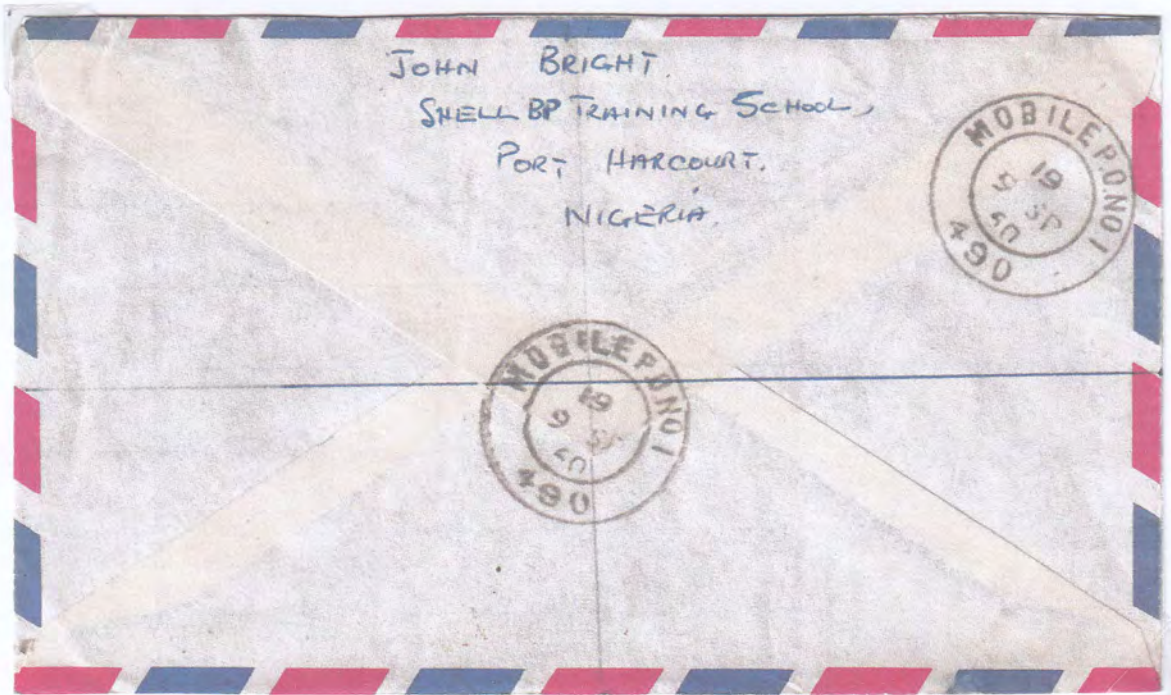 JOHN BRIGHT.
SHELL BP TRAINING SCHOOL,
PORT HARCOURT.
NIGERIA.
MOBILE P.O. NO 1
19
9 SP
60
490
MOBILE P.O. NO 1
19
9 SP
60
490